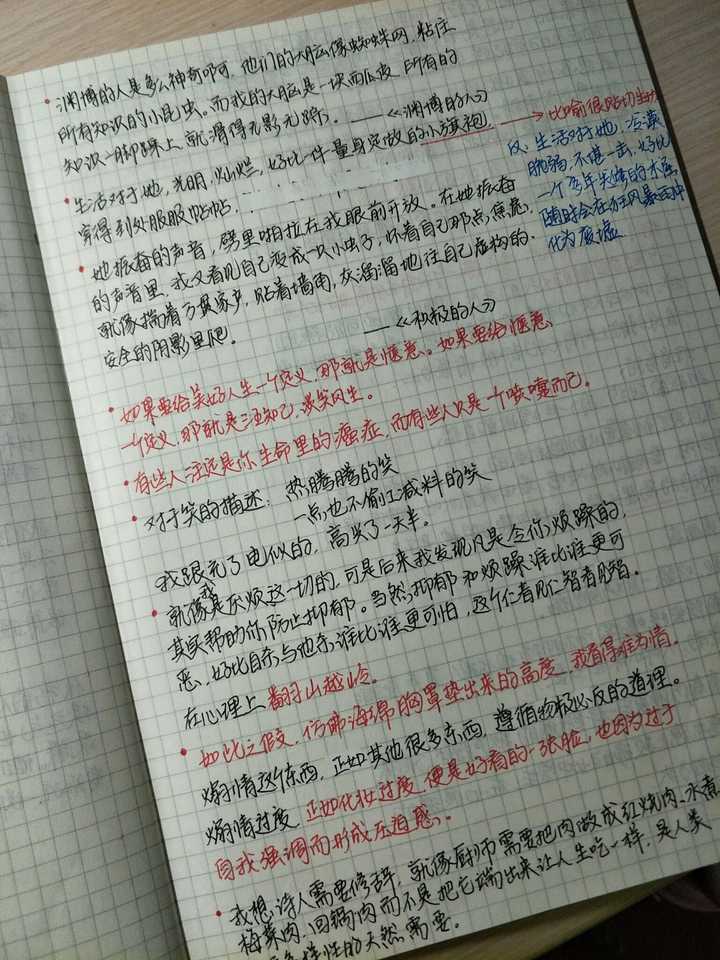 渊博的人是多么神奇啊可，他们的大脑像蜘蛛网，粘住
所有知识的小昆虫。而我的大脑是一块西瓜皮，所有的
知识一脚踩上，就滑得无影无踪。 ——《渊博的人》
生活对于她，光明，灿烂，好比一件量身定做的小旗袍，
穿得到处服服帖帖。
→比喻很贴切生动
仅，生活对于她，冷漠
脆弱，不堪一击，好比
一个多年失修的木屋
随时会在狂风暴雨中
化为废墟
她振奋的声音，劈里啪拉在我眼前开放。在她振奋
的声音里，我又看见自己变成一只小虫子，怀着自己那点焦虑，
就像揣着万贯家产，贴着墙角，灰溜溜地往自己虚构的、
安全的阴影里爬。 ——《积极的人》
如果要给美好人生一个定义，那就是惬意。如果要给惬意
一个定义，那就是三五知己，谈笑风生。
有些人注定是你生命里的癌症，而有些人只是一个喷嚏而已。
对于笑的描述：热腾腾的笑
一点也不偷工减料的笑
我跟充了电似的，高兴了一天半。
就像我是厌烦这一切的，可是后来我发现凡是令你烦躁的，
其实帮助你防止抑郁。当然，抑郁和烦躁谁比谁更可
恶，好比自杀与他杀谁比谁更可怕，这个仁者见仁智者见智。
在心理上翻山越岭。
如此之假，仿佛海绵胸罩垫出来的高度，我看得难为情。
煽情这个东西，正如其他很多东西，遵循物极必反的道理。
煽情过度，正如化妆过度，便是好看的一张脸，也因为过于
自我强调而形成压迫感。
我想诗人需要修辞，就像厨师需要把肉做成红烧肉、水煮
梅菜肉、回锅肉而不是把它端出来让人生吃一样，是人类
多样性的天然需要。